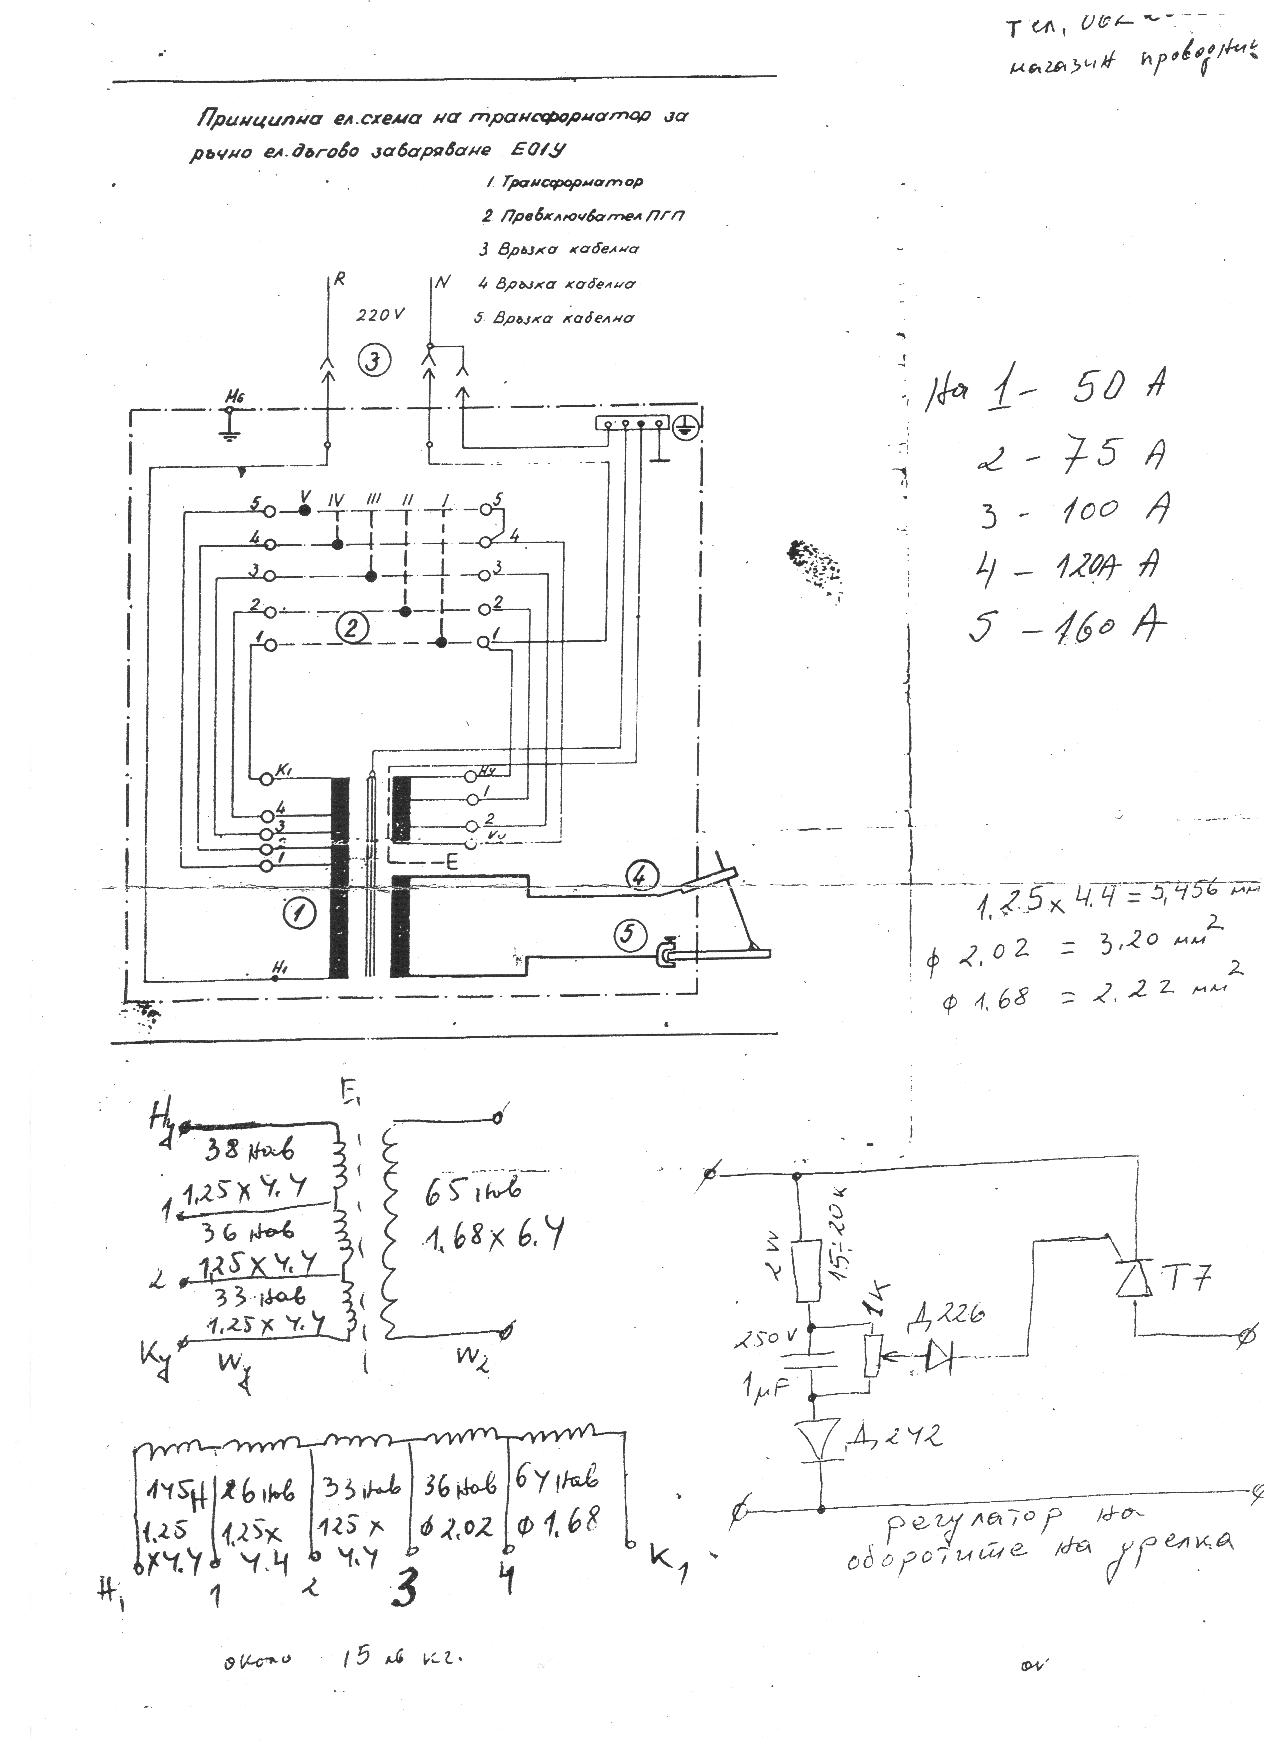 магазин проводник
Принципна ел.схема на трансформатор за
ръчно ел.дъгово заваряване ЕО1У
1 Трансформатор
2 Превключвател ПГП
3 Връзка кабелна
4 Връзка кабелна
5 Връзка кабелна
R
N
220V
3
М6
На 1 - 50 А
2 - 75 А
3 - 100 А
4 - 120А А
5 - 160 А
5 V IV III II I 5
4 4
3 3
2 2
1 2 1
К1 Ну
4 1
3 2
1
Е
4
1
5
Н1
1.25 x 4.4 = 5,456 мм
ф 2.02 = 3.20 мм2
ф 1.68 = 2.22 мм2
Е1
Ну
38 нав
1,25 x 4.4
1
36 нав
1,25 x 4.4
2
33 нав
1.25 x 4.4
Ку
Wу
65 нав
1.68 x 6.4
W2
2W
15÷20к
1К
250V
1µF
Д226
Т7
Д242
регулатор на
оборотите на урелка
145Н 26 нав 33 нав 36 нав 64 нав
1.25 1.25x 125 x ф 2.02 ф 1.68
x4.4 4.4 4.4
Н1 1 2 3 4 К1
около 15 кг.